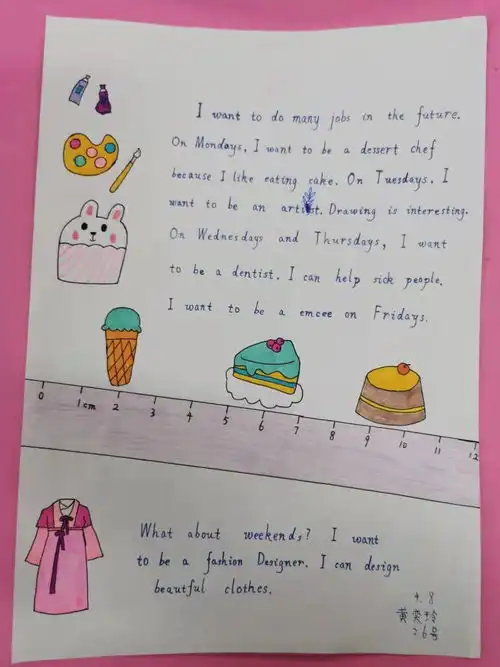 I want to do many jobs in the future.
On Mondays, I want to be a dessert chef
because I like eating cake. On Tuesdays, I
want to be an artist. Drawing is interesting.
On Wednesdays and Thursdays, I want
to be a dentist. I can help sick people.
I want to be a emcee on Fridays.
0 1cm 2 3 4 5 6 7 8 9 10 11 12
What about weekends? I want
to be a fashion Designer. I can design
beautful clothes.
4.8
黄奕玲
26号